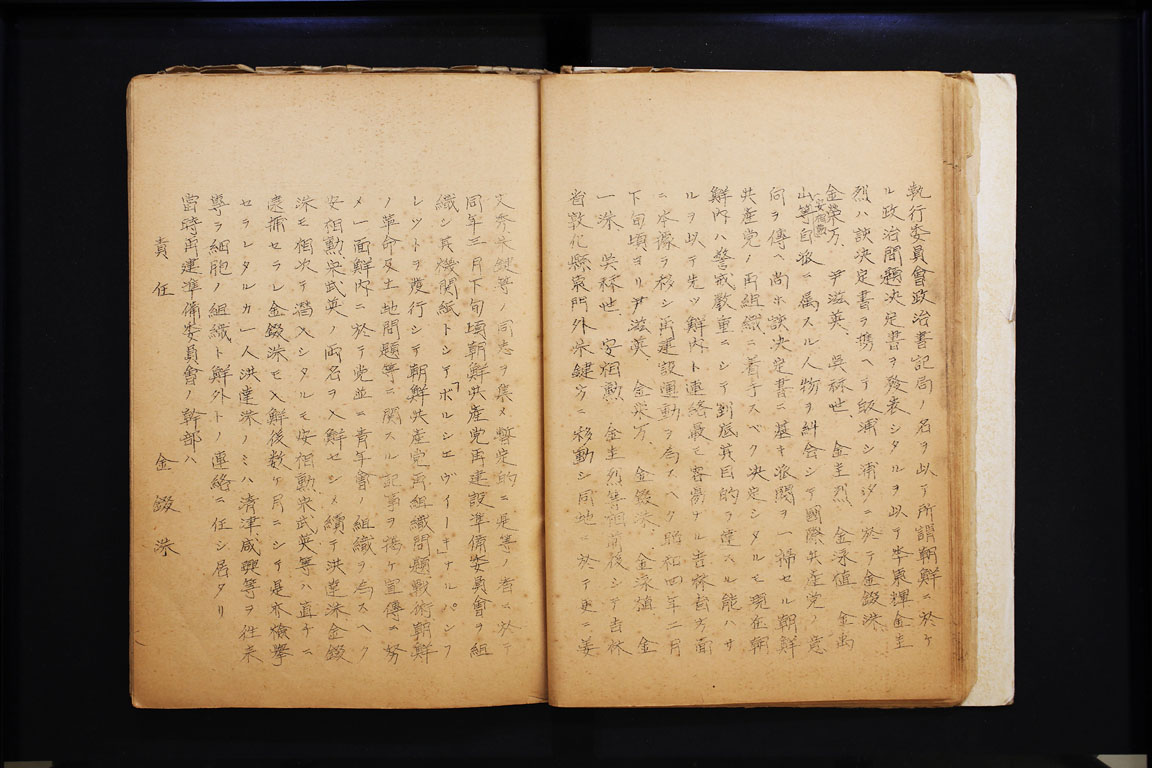 執行委員會政治書記局ノ名ヲ以テ所謂朝鮮ニ於ケ
ル政治問題決定書ヲ發表シタルヲ以テ李東輝金圭
烈ハ該決定書ヲ携ヘテ浦汐ニ於テ金錣洙
金榮万、尹滋英、呉秌世、金圭烈、金泳植、金
山等自派ニ属スル人物ヲ糾合シテ國際共産党ノ意
安相勲
向ヲ傳ヘ尚ホ該決定書ニ基キ派閥ヲ一掃セル朝鮮
共産党ノ再組織ニ着手スベク決定シタルモ現在朝
鮮內ハ警戒厳重ニシテ到底其目的ヲ達スル能ハサ
ルヲ以テ先ツ鮮內ト連絡最モ容易ナル吉林省方面
ニ本據ヲ移シ再建設運動ヲ為スヘク昭和四年二月
下旬頃ヨリ尹滋英、金榮万、金錣洙、金泳植、金
一洙、呉秌世、安相勲、金圭烈等相前後シテ吉林
省敦化縣東門外朱鍵方ニ移動シ同地ニ於テ更ニ姜
文秀朱鍵等ノ同志ヲ集メ暫定的ニ是等ノ者ニ於テ
同年三月下旬頃朝鮮共産党再建設準備委員會ヲ組
織シ其機関紙トシテ「ボルシエヴイーキ」ナルパンフ
レツトヲ發行シテ朝鮮共産党再組織問題戰術朝鮮
ノ革命及土地問題等ニ関スル記事ヲ揭ケ宣傳ニ努
メ一面鮮內ニ於テ党並ニ青年會ノ組織ヲ為スヘク
安相勲宋武英ノ両名ヲ入鮮セシメ續テ洪達洙金錣
洙モ相次テ潜入シタルモ安相勲宋武英等ハ直チニ
逮捕セラレ金錣洙モ入鮮後数ヶ月ニシテ是亦檢擧
セラレタルカ一人洪達洙ノミハ清津、咸興等ヲ往来
ラ細胞ノ組織ト鮮外トノ連絡ニ任シ居タリ
當時再建準備委員會ノ幹部ハ
責任　金錣洙